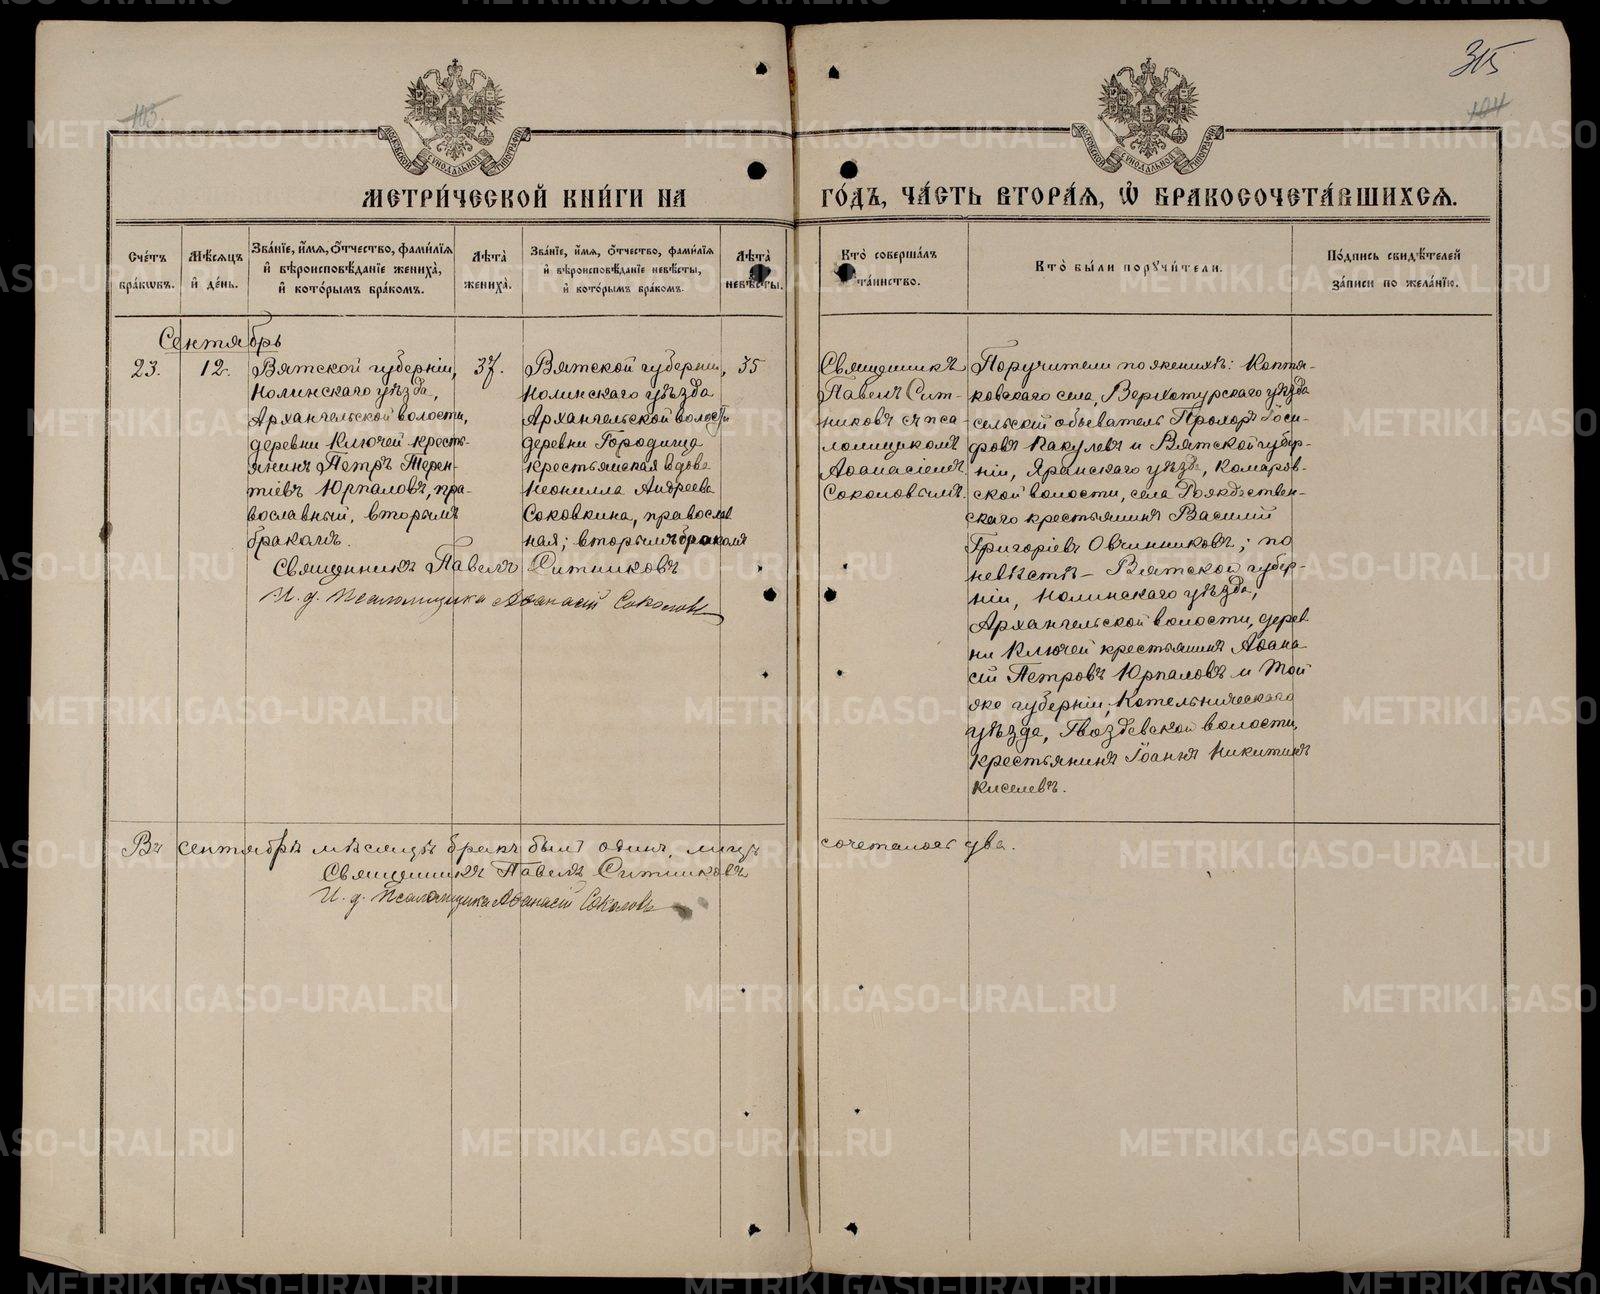 315
103.
104
МОСКОВСКОЙ СѴНОДАЛЬНОЙ ТИПОГРАФІИ
МОСКОВСКОЙ СѴНОДАЛЬНОЙ ТИПОГРАФІИ
МЕТРИ́ЧЕСКОЙ КНИ́ГИ НА ГО́ДЪ, ЧА́СТЬ ВТОРА́Я, Ѽ БРАКОСОЧЕТА́ВШИХСЯ.
Сче́тъ бра́кѡвъ.
Мѣ́сяцъ и҆ де́нь.
Зва́нїе, и҆́мя, ѻ҆́тчество, фами́лїя и҆ вѣроисповѣ́данїе жениха̀, и҆ кото́рымъ бра́комъ.
Лѣ́та̀ жениха̀.
Зва́нїе, и҆́мя, ѻ҆́тчество, фами́лїя и҆ вѣроисповѣ́данїе невѣ́сты, и҆ кото́рымъ бра́комъ.
Лѣ́та̀ невѣ́сты.
Кто̀ соверша́лъ та́инство.
Кто̀ бы́ли поручи́тели.
По́дпись свидѣ́телей за́писи по жела́нїю.
Сентябрь
23.
12.
Вятской губерніи,
Нолинскаго уѣзда,
Архангельской волости,
деревни Ключей кресть-
янинъ Петръ Терен-
тіевъ Юрпаловъ, пра-
вославный, вторымъ
бракомъ.
37.
Вятской губерніи,
Нолинскаго уѣзда
Архангельской волости
деревни Городища
крестьянская вдова
Неонилла Андреева
Соковкина, православ
ная; вторымъ бракомъ
35
Священникъ Павелъ Ситниковъ
И. д. Псаломщика Аѳанасій Соколовъ
Священникъ
Павелъ Сит-
никовъ съ пса-
ломщикомъ
Аѳанасіемъ
Соколовымъ.
Поручители по женихѣ: Коптя-
ковскаго села, Верхотурскаго уѣзда
сельскій обыватель Прохоръ Іоси-
фовъ Какулевъ и Вятской губер-
ніи, Яранскаго уѣзда, Комаров-
ской волости, села Рождествен-
скаго крестьянинъ Василій
Григоріевъ Овчинниковъ; по
невѣстѣ – Вятской губер-
ніи, Нолинскаго уѣзда,
Архангельской волости, дерев
ни Ключей крестьянинъ Аѳана
сій Петровъ Юрпаловъ и той
же губерніи, Котельническаго
уѣзда, Гвоздевской волости,
крестьянинъ Іоаннъ Никитинъ
Киселевъ.
Въ сентябрѣ мѣсяцѣ бракъ былъ одинъ, лицъ сочеталось два.
Священникъ Павелъ Ситниковъ
И. д. Псаломщика Аѳанасій Соколовъ
METRIKI.GASO-URAL.RU